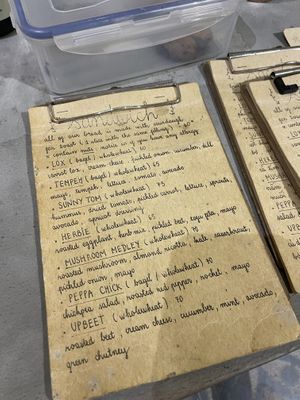 Sandwich
all of our bread is made with sourdough
contain nuts, notice in if you have any allergy
- LOX (bagel / wholewheat) 75
carrot lox, cream cheese, pickled onion, cucumber, dill
- TEMPEH (bagel / wholewheat) 65
mayo, tempeh, lettuce, tomato, avocado
- SUNNY TOM (wholewheat) 75
hummus, dried tomato, pickled carrot, lettuce, sprouts,
avocado, apricot dressing
- HERBIE (wholewheat) 65
roasted eggplant, herb mix, pickled beet, mayo
- MUSHROOM MEDLEY (wholewheat) 70
roasted mushroom, almond ricotta, kale, sauerkraut,
pickled onion, mayo
- PEPPA CHICK (bagel / wholewheat) 70
chickpea salad, roasted red pepper, rocket, mayo
- UPBEET (wholewheat) 70
roasted beet, cream cheese, cucumber, mint, avocado,
green chutney